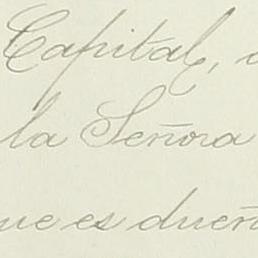 Capital,
la Señora
que es dueñ